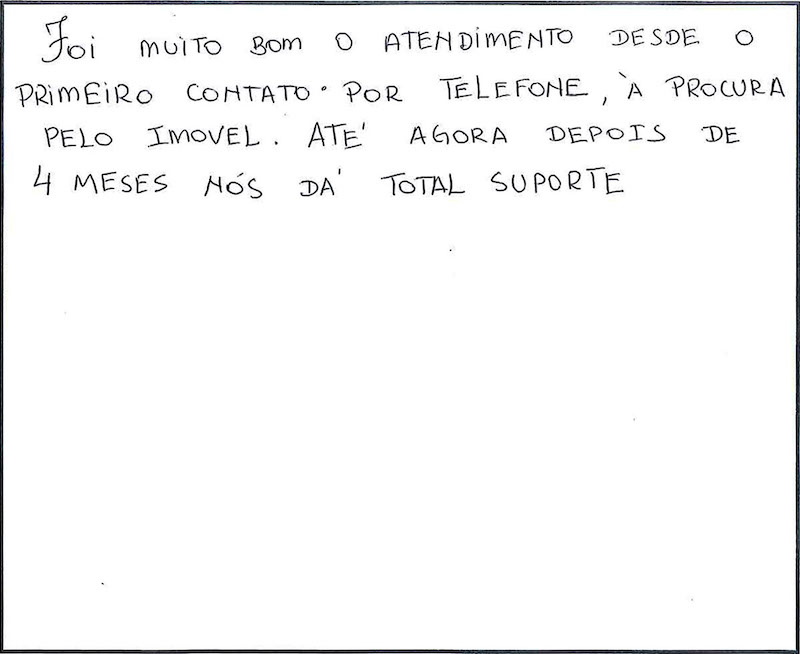 Foi MUITO BOM O ATENDIMENTO DESDE O
PRIMEIRO CONTATO. POR TELEFONE, À PROCURA
PELO IMOVEL. ATÉ AGORA DEPOIS DE
4 MESES NÓS DÁ TOTAL SUPORTE